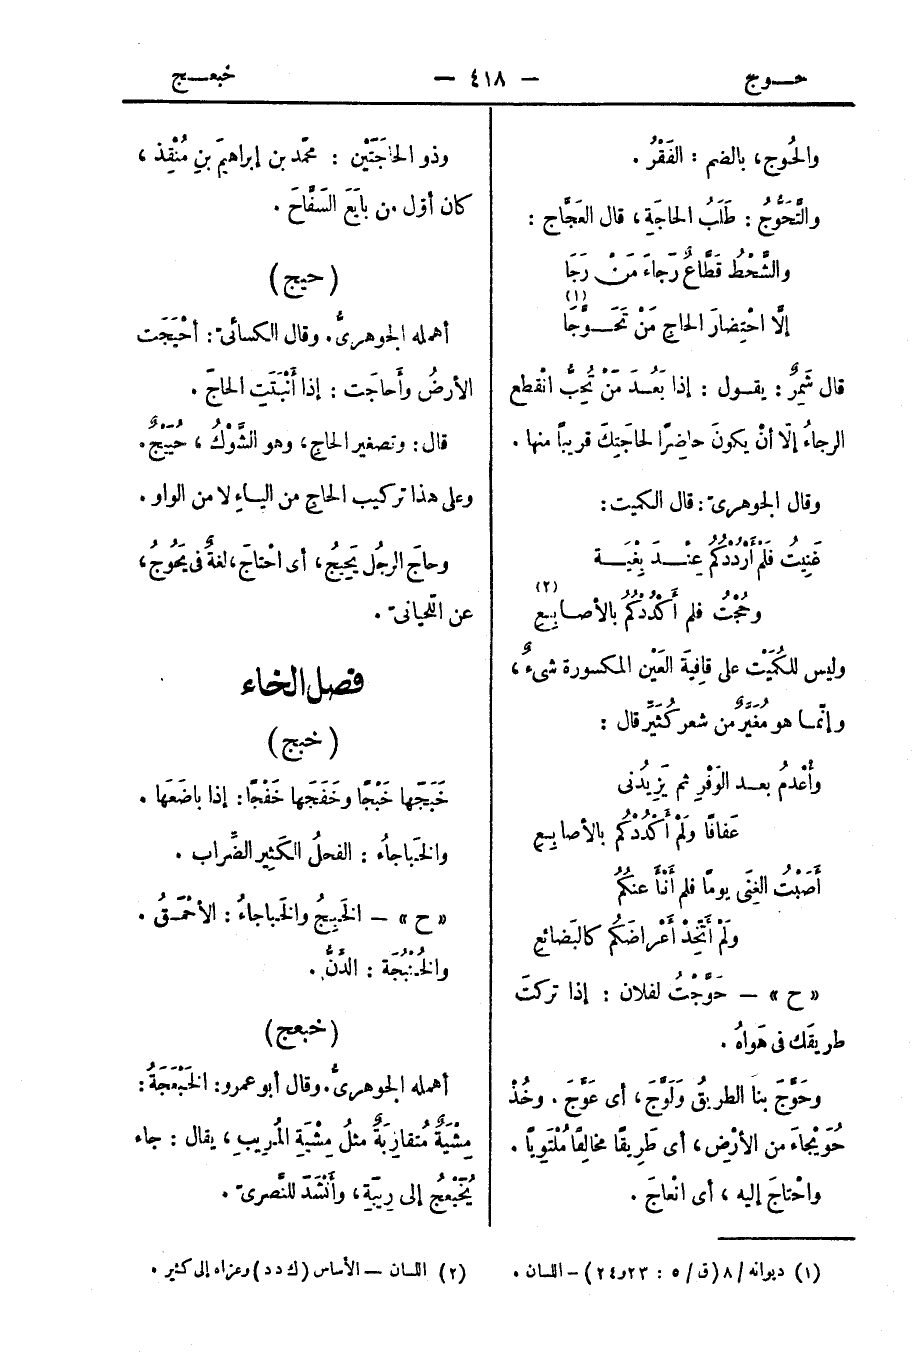 حــوج
— ٤١٨ —
خبعــج
والحُوج، بالضم : الفَقْرُ .
والتَّحَوُّجُ : طَلَبُ الحاجَةِ، قال العَجَّاج :
والشَّحْطُ قَطَّاعٌ رَجاءَ مَنْ رَجَا
إلَّا احْتِضارَ الحاجِ مَنْ تَحَــوَّجَا (١)
قال شَمِرٌ : يقــول : إذا بَعُــدَ مَنْ تُحِبُّ انْقطع
الرجاءُ إلّا أنْ يكونَ حاضِرًا لحاجَتِكَ قريبًا منها .
وقال الجوهرىّ : قال الكميت :
غَنِيتُ فَلَمْ أَرْدُدْكُمُ عِنْــدَ بِغْيَــة
وحُجْتُ فلم أَكْدُدْكُمُ بالأصــابِــعِ (٢)
وليس للكُمَيْت على قافِيَةَ العَيْن المكسورة شىءٌ،
وإنّمــا هو مُغَيَّرٌ من شعر كُثَيِّر قال :
وأُعْدِمُ بعــد الوَفْرِ ثم يَزِيدُنى
عَفافًا ولَمْ أَكْدُدْكُم بالأصابِــعِ
أَصَبْتُ الغِنَى يومًا فلم أَنْأَ عنكُمُ
ولَمْ أَتَّخِذْ أَعْراضَكُم كالبَضائعِ
« ح » — حَوَّجْتُ لفلان : إذا تركتَ
طريقَك فى هَواهُ .
وحَوَّجَ بنا الطريقُ ولَوَّجَ، أى عَوَّجَ . وخُذْ
حُوَيْجاءَ من الأرْضِ، أى طَرِيقًا مخالفًا مُلْتَوِيًا .
واحْتاجَ إليه ، أى انْعاجَ .
وذو الحاجَتَيْن : محمّد بن إبراهيمَ بنِ مُنْقِذ ،
كان أوّل من بايَعَ السَفَّاحَ .
( حيج )
أهمله الجوهرىُّ. وقال الكسائىّ : أَحْيَجَت
الأرضُ وأَحاجَت : إذا أَنْبَتَتِ الحاجَ .
قال : وتصغير الحاج، وهو الشَّوْكُ ، حُيَيْجٌ.
وعلى هذا تركيب الحاج من الياءِ لا من الواو .
وحاجَ الرجلُ يَحِيجُ، أى احْتاجَ، لغةٌ فى يَحُوجُ،
عن اللّحيانىّ .
فصل الخاء
( خبج )
خَبَجَها خَبْجًا وخَفَجَها خَفْجًا : إذا باضَعَها .
والخَباجاءُ : الفحلُ الكَثِير الضِّراب .
« ح » — الخَبِيجُ والخَباجاءُ : الأحْمَــقُ .
والخُنْبُجَة : الدَّنُّ .
( خبعج )
أهمله الجوهرىُّ. وقال أبو عمرو : الخَبْعَجَةُ :
مِشْيَةٌ مُتقارِبَةٌ مثلُ مِشْيَةِ المُرِيب ، يقال : جاء
يُخَبْعِجُ إلى رِيبَةٍ، وأَنْشَدَ للنَّصرىّ .
(١) ديوانه / ٨ (ق / ٥ : ٢٣ و ٢٤) – اللسان .
(٢) اللسان – الأساس (ك د د) وعزاه إلى كثير .